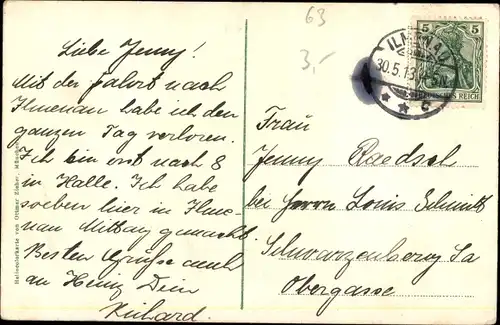 Liebe Jenny!
Mit der Fahrt nach
Ilmenau habe ich den
ganzen Tag verloren.
Ich bin erst nach 8
in Halle. Ich habe
soeben hier in Ilme-
nau Mittag gemacht.
Besten Grüße auch
an Heinz Dein
Richard.
63
3,-
ILMENAU
30.5.13
* * c
5 5
DEUTSCHES REICH
Frau
Jenny Raedsch
bei Herrn Louis Schmidt
Schwarzenberg Sa
Obergasse
Heliocolorkarte von Ottmar Zieher, München